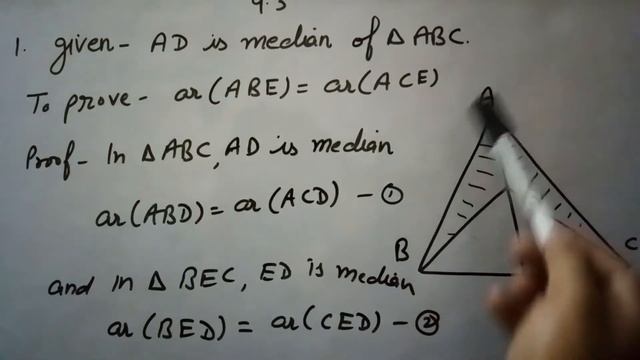 9.3
1. given - AD is median of △ ABC.
To prove - ar(ABE) = ar(ACE)
Proof - In △ ABC, AD is median
ar(ABD) = ar(ACD) - ①
and in △ BEC, ED is median
ar(BED) = ar(CED) - ②
A
B
C